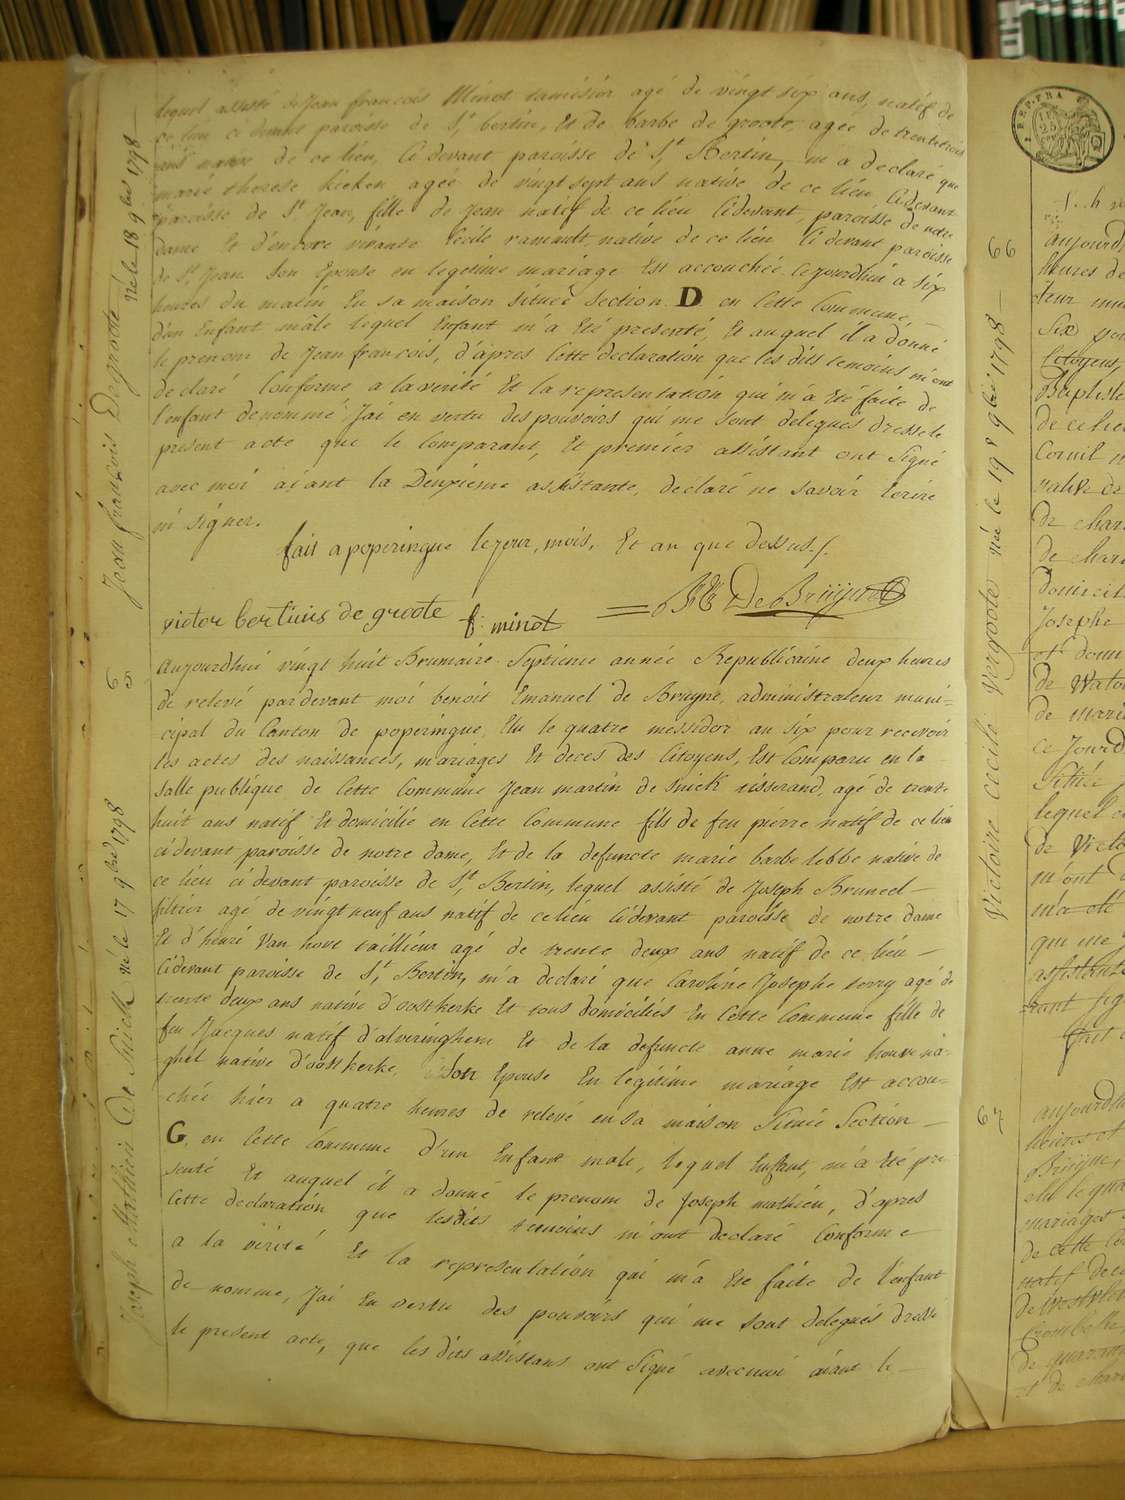 lequel assisté de Jean francois Minot tamisier agé de vingt six ans, natif de
ce lieu ci devant paroisse de St. bertin, Et de barbe de groote, agée de trente trois
ans native de ce lieu, Ci devant paroisse de St. Bertin, m'a declaré que
marie therese kieken agée de vingt sept ans native de ce lieu Cidevant
paroisse de St Jean, fille de Jean natif de ce lieu Cidevant, paroisse de notre
dame Et d'encore vivante Cecile rameault native de ce lieu Ci devant paroisse
de St. Jean Son Epouse en legitime mariage Est accouchée Cejourdhui a six
heures du matin En sa maison Située Section D en Cette Commune
d'un Enfant mâle lequel Enfant m'a Eté presenté, Et auquel il a donné
le prenom de Jean francois, d'apres Cette declaration que les dits temoins m'ont
declaré Conforme a la verité Et la representation qui m'a Eté faite de
l'enfant denommé, Jai en vertu des pouvoirs qui me Sont delegués dressé le
present acte que le Comparant, Et premier assistant ont Signé
avec moi aiant la Deuxieme assistante, declaré ne savoir Ecrire
ni signer.
fait a poperingue le jour, mois, Et an que dessus./.
victor bertinus de groote f: minot De Bruyne
Aujourdhui vingt huit Brumaire Septieme année Republicaine deux heures
de relevé pardevant moi benoit Emanuel de Bruyne, administrateur muni-
cipal du Canton de poperingue, Elu le quatre messidor an six pour recevoir
les actes des naissances, mariages Et deces des Citoyens, Est Comparu en la
Salle publique de Cette Commune Jean martin de Snick tisserand, agé de trente
huit ans natif Et domicilié en Cette Commune fils de feu pierre natif de ce lieu
ci devant paroisse de notre dame, Et de la defuncte marie barbe lebbe native de
ce lieu ci devant paroisse de St. Bertin, lequel assisté de Joseph Bruneel
filtier agé de vingt neuf ans natif de ce lieu Cidevant paroisse de notre dame
Et d'henri Van hove taillieur agé de trente deux ans natif de ce lieu
Cidevant paroisse de St. Bertin, m'a declaré que Caroline Josephe terry agé de
trente deux ans native d'oostkerke Et tous domiciliés En Cette Commune fille de
feu Jacques natif d'alveringhem Et de la defuncte anne marie houvena-
ghel native d'oostkerke, Son Epouse En legitime mariage Est accou-
chée hier a quatre heures de relevé en sa maison Située Section
G. en Cette Commune d'un Enfant male, lequel Enfant, m'a Eté pre
senté Et auquel il a donné le prenom de Joseph mathieu, d'apres
Cette declaration que lesdits temoins m'ont declaré Conforme
a la vérité Et la representation qui m'a Eté faite de l'enfant
de nommé, Jai En vertu des pouvoirs qui me Sont delegués dressé
le present acte, que les dits assistans ont Signé avec moi aiant le
Jean francois Degroote né le 18 9bre 1798
65
Joseph Mathieu De Snick né le 17 9bre 1798
66
Victoire cecile Vergoote née le 19e 9bre 1798
67
aujourd
heures de
Six
Citoyens,
Baptiste
de ce lieu
Cornil
de
de
domicil
Josephe
de Watou
de marie
ce Jourd
lequel
de Victo
m'ont
m'a eté
qui me
assistants
fait
aujourdhu
Bruyne,
elu le qua
mariages
de cette
natif de ce